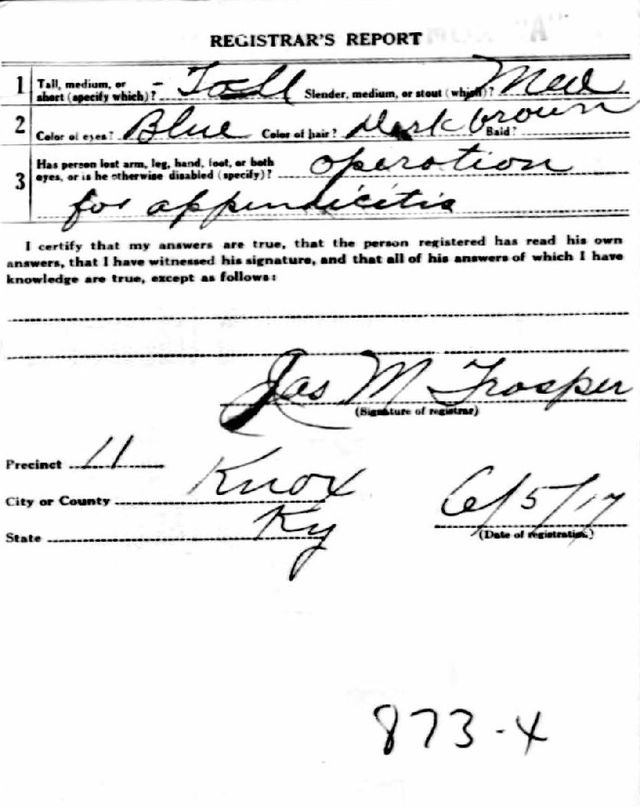 REGISTRAR'S REPORT
1 Tall, medium, or short (specify which)? - Tall Slender, medium, or stout (which)? Med
2 Color of eyes? Blue Color of hair? Dark brown Bald?
3 Has person lost arm, leg, hand, foot, or both eyes, or is he otherwise disabled (specify)? operation
for appendicitis
I certify that my answers are true, that the person registered has read his own
answers, that I have witnessed his signature, and that all of his answers of which I have
knowledge are true, except as follows:
Jas M Trosper
(Signature of registrar)
Precinct 11
City or County Knox
State Ky
6/5/17
(Date of registration)
873-4